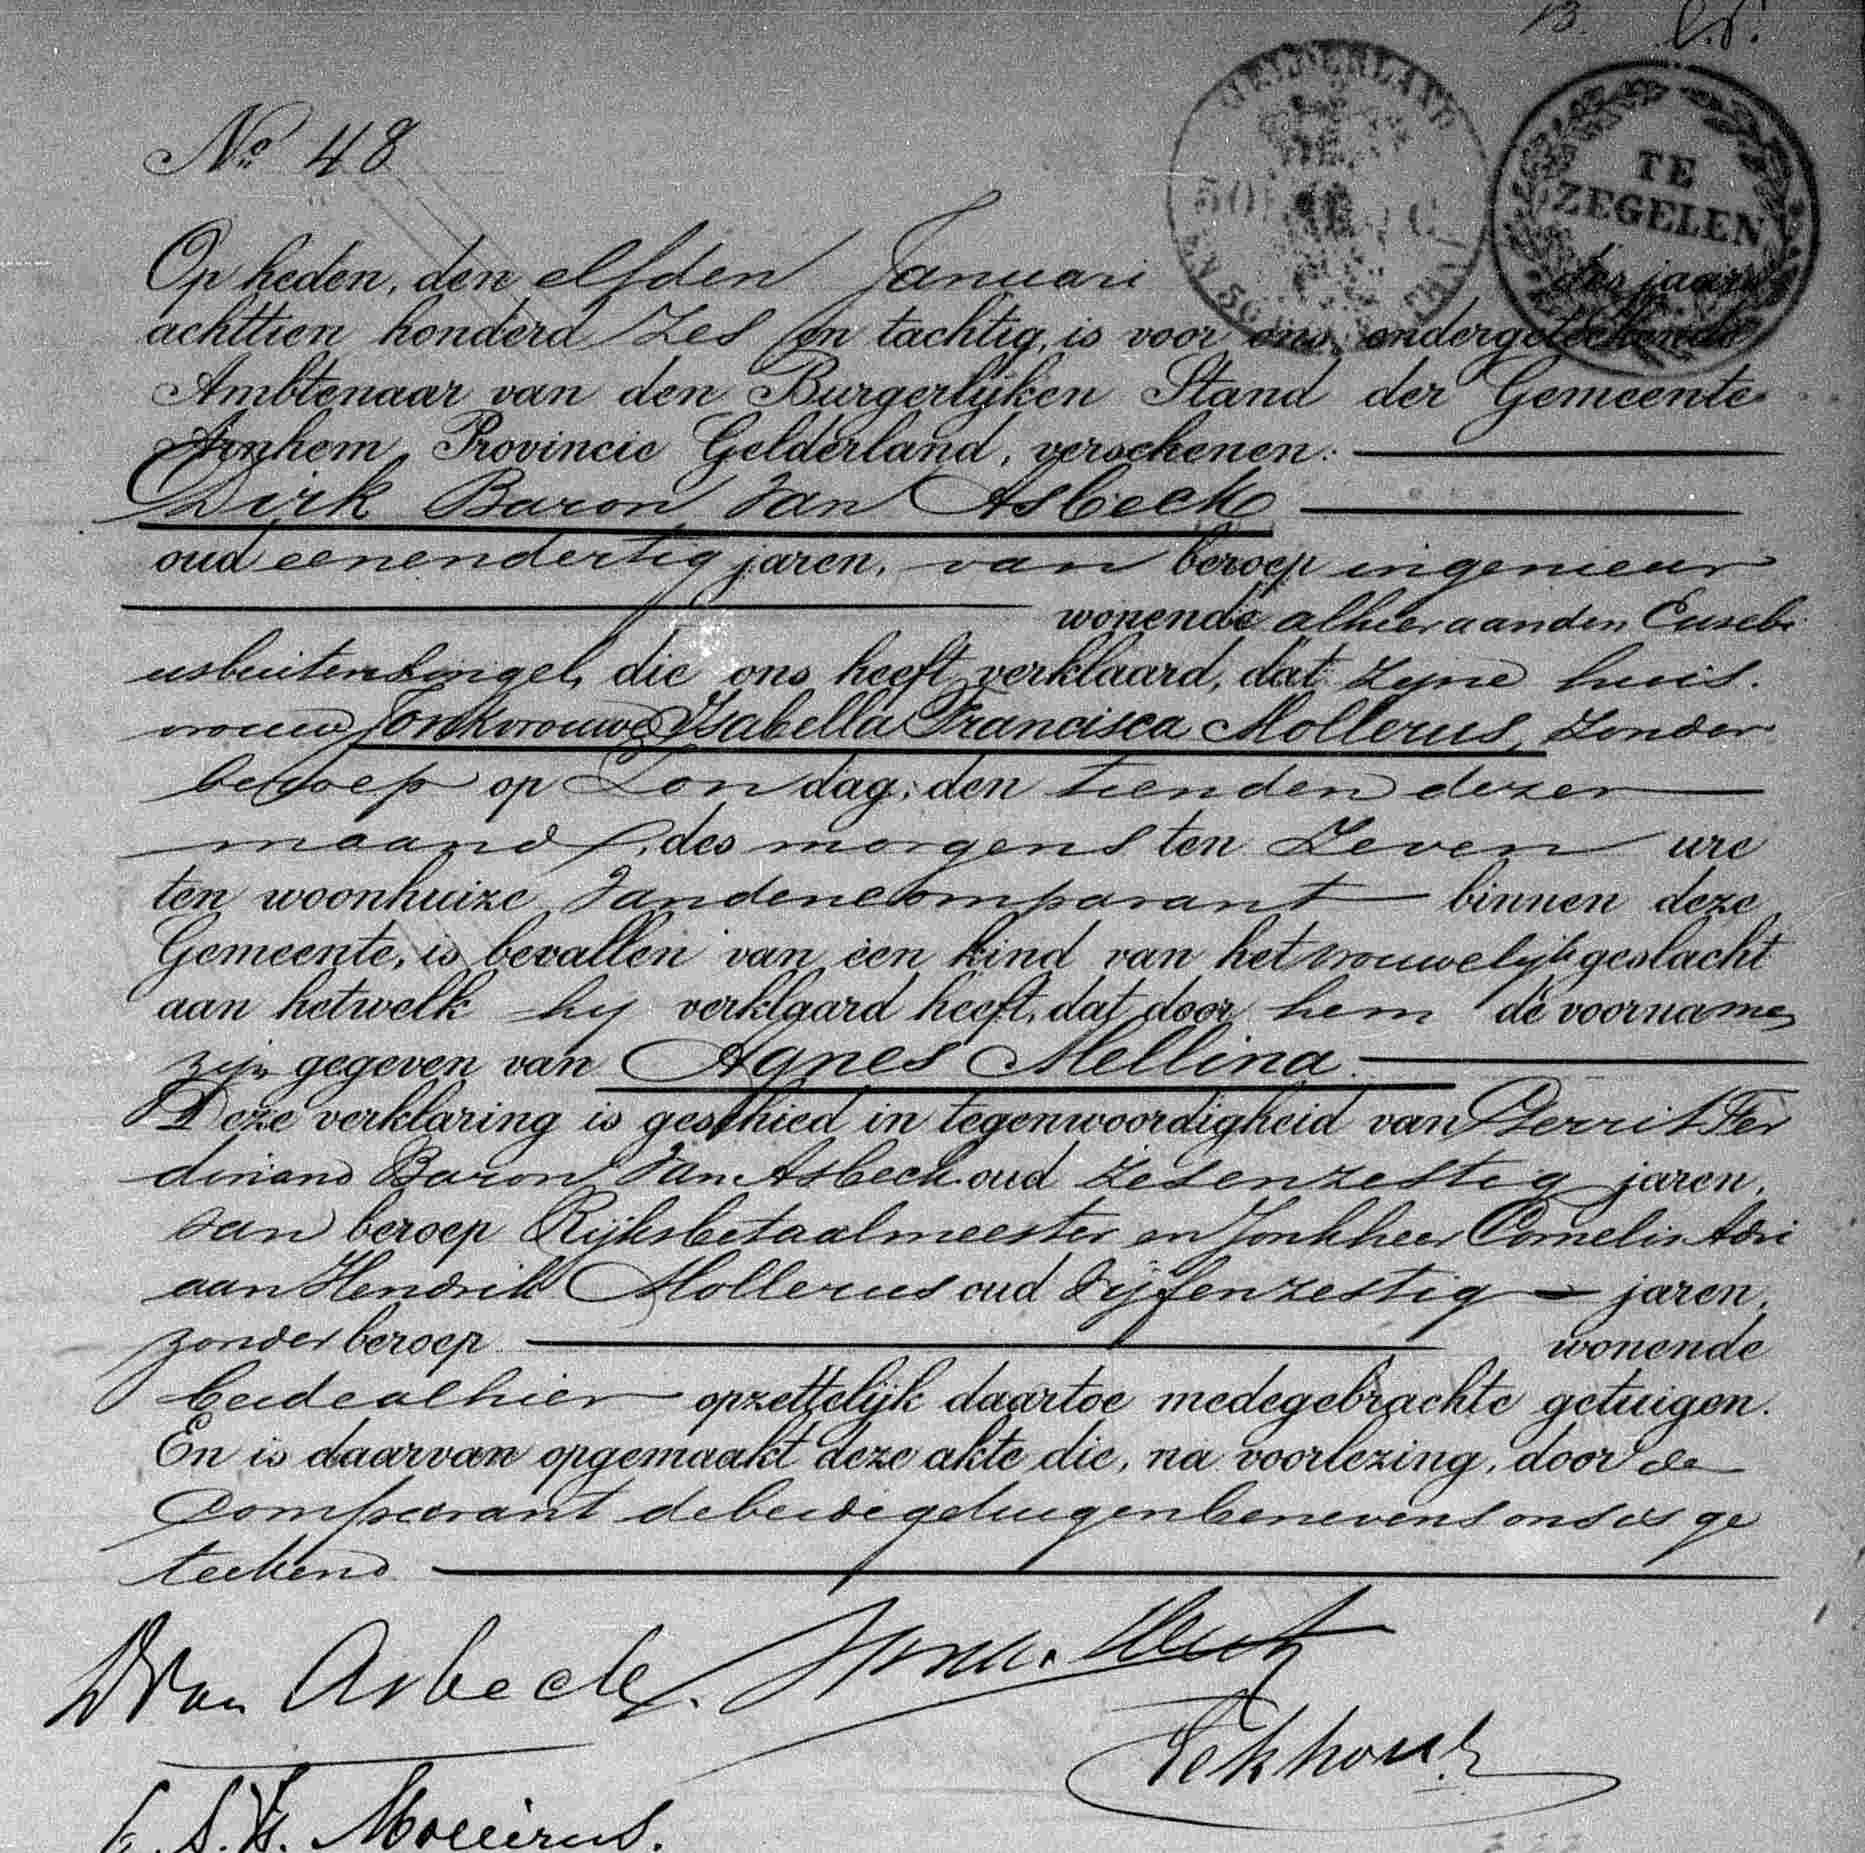 13.
GELDERLAND
TE
ZEGELEN
No 48
Op heden, den elfden Januari des jaars
achttien honderd zes en tachtig, is voor ons, ondergeteekende
Ambtenaar van den Burgerlijken Stand der Gemeente
Arnhem, Provincie Gelderland, verschenen:
Dirk Baron van Asbeck
oud eenendertig jaren, van beroep ingenieur
wonende alhier aan den Eusebi
usbuitensingel, die ons heeft verklaard, dat zyne huis-
vrouw Jonkvrouwe Isabella Francisca Mollerus, zonder
beroep op Zondag, den tienden dezer
maand, des morgens ten zeven ure
ten woonhuize van den comparant binnen deze
Gemeente, is bevallen van een kind van het vrouwelijk geslacht
aan hetwelk hy verklaard heeft, dat door hem de voorname,
zijn gegeven van Agnes Mellina.
Deze verklaring is geschied in tegenwoordigheid van Gerrit Fer
dinand Baron van Asbeck oud zesenzestig jaren,
van beroep Rijksbetaalmeester en Jonkheer Cornelis Adri
aan Hendrik Mollerus oud vijfenzestig jaren,
zonder beroep wonende
beide alhier opzettelijk daartoe medegebrachte getuigen.
En is daarvan opgemaakt deze akte die, na voorlezing, door de
comparant de beide getuigen benevens ons is ge
teekend
D van Asbeck.
Mollerus.